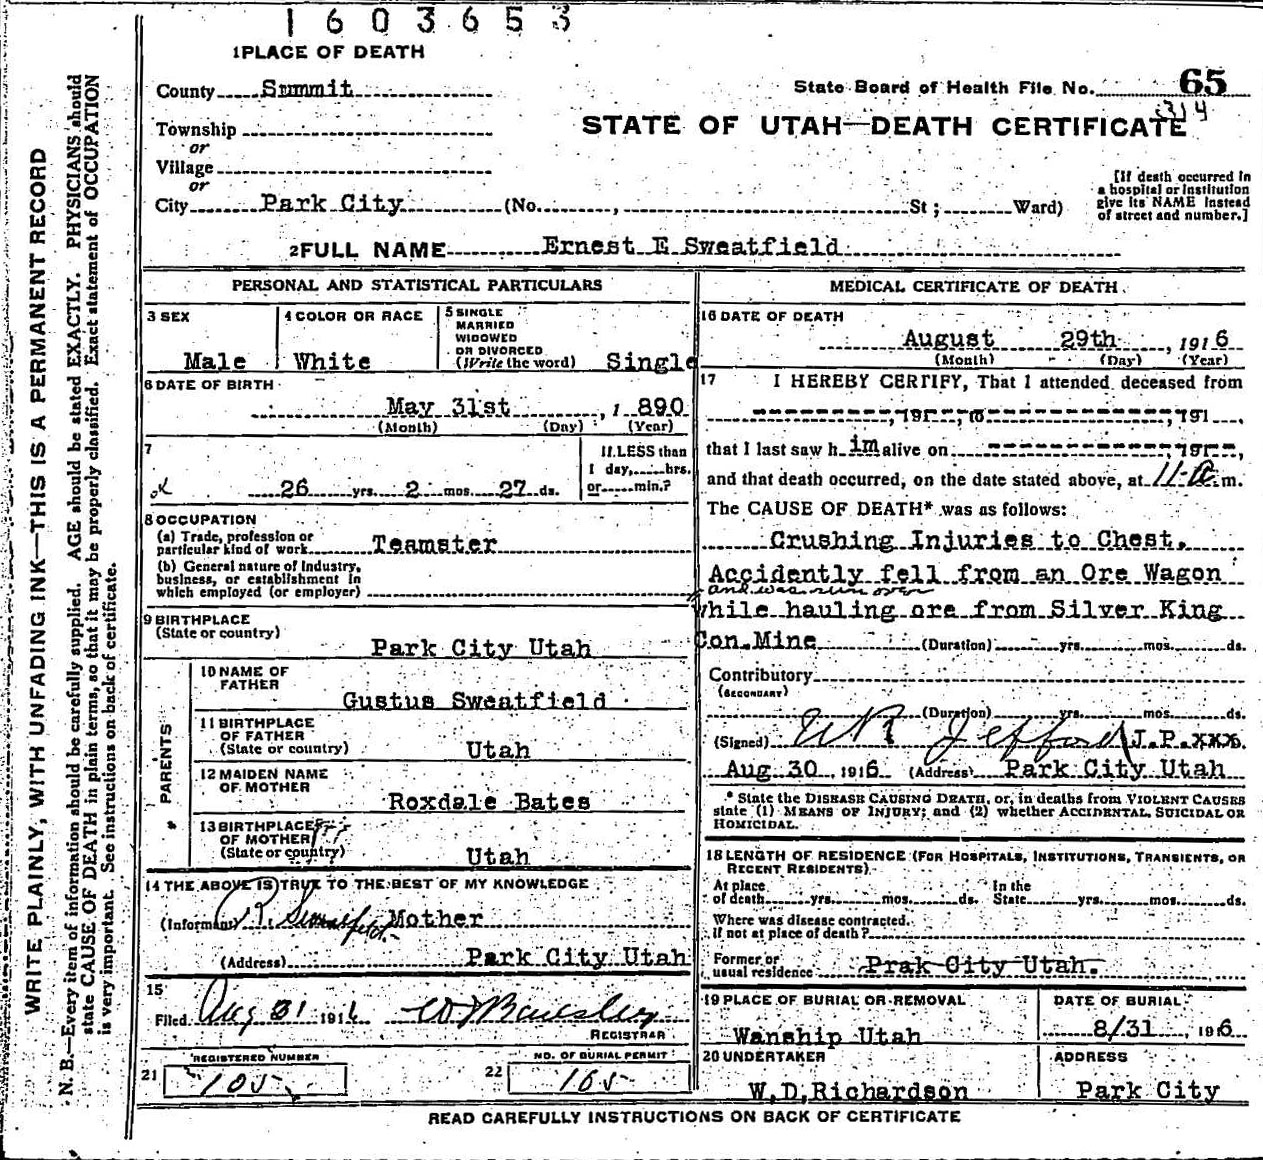 1603653
1 PLACE OF DEATH
County Summit
State Board of Health File No. 65
314
Township
or
STATE OF UTAH—DEATH CERTIFICATE
Village
or
City Park City (No. , St; Ward)
[If death occurred in
a hospital or institution
give its NAME instead
of street and number.]
2 FULL NAME Ernest E Sweatfield
PERSONAL AND STATISTICAL PARTICULARS
3 SEX
Male
4 COLOR OR RACE
White
5 SINGLE
MARRIED
WIDOWED
OR DIVORCED
(Write the word) Single
6 DATE OF BIRTH
May 31st , 1 890
(Month) (Day) (Year)
7
26 yrs. 2 mos. 27 ds.
If LESS than
1 day, hrs.
or min.?
8 OCCUPATION
(a) Trade, profession or
particular kind of work Teamster
(b) General nature of Industry,
business, or establishment in
which employed (or employer)
9 BIRTHPLACE
(State or country)
Park City Utah
PARENTS
10 NAME OF
FATHER
Gustus Sweatfield
11 BIRTHPLACE
OF FATHER
(State or country) Utah
12 MAIDEN NAME
OF MOTHER
Roxdale Bates
13 BIRTHPLACE
OF MOTHER
(State or country) Utah
14 THE ABOVE IS TRUE TO THE BEST OF MY KNOWLEDGE
(Informant) R. Sweatfield Mother
(Address) Park City Utah
15
Filed Aug 31 1916
REGISTRAR
REGISTERED NUMBER
21 105
NO. OF BURIAL PERMIT
22 165
MEDICAL CERTIFICATE OF DEATH
16 DATE OF DEATH
August 29th , 1916
(Month) (Day) (Year)
17 I HEREBY CERTIFY, That I attended deceased from
, 191 , to , 191 ,
that I last saw h im alive on , 191 ,
and that death occurred, on the date stated above, at 11-a m.
The CAUSE OF DEATH* was as follows:
Crushing Injuries to Chest.
Accidently fell from an Ore Wagon
and was run over
while hauling ore from Silver King
Con.Mine (Duration) yrs. mos. ds.
Contributory
(SECONDARY)
(Duration) yrs. mos. ds.
(Signed) W R Jefford J.P.xxx.
Aug 30 , 1916 (Address) Park City Utah
* State the DISEASE CAUSING DEATH, or, in deaths from VIOLENT CAUSES
state (1) MEANS OF INJURY; and (2) whether ACCIDENTAL, SUICIDAL OR
HOMICIDAL.
18 LENGTH OF RESIDENCE (FOR HOSPITALS, INSTITUTIONS, TRANSIENTS, OR
RECENT RESIDENTS)
At place
of death yrs. mos. ds.
In the
State yrs. mos. ds.
Where was disease contracted.
if not at place of death?
Former or
usual residence Prak City Utah.
19 PLACE OF BURIAL OR REMOVAL
Wanship Utah
DATE OF BURIAL
8/31 , 1916
20 UNDERTAKER
W.D.Richardson
ADDRESS
Park City
READ CAREFULLY INSTRUCTIONS ON BACK OF CERTIFICATE
WRITE PLAINLY, WITH UNFADING INK—THIS IS A PERMANENT RECORD
N. B.—Every item of information should be carefully supplied. AGE should be stated EXACTLY. PHYSICIANS should
state CAUSE OF DEATH in plain terms, so that it may be properly classified. Exact statement of OCCUPATION
is very important. See instructions on back of certificate.